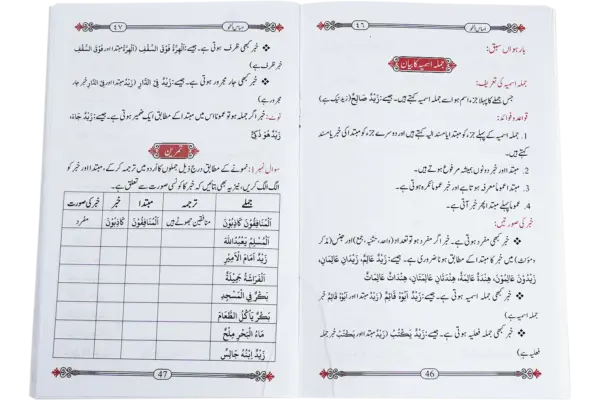 ٤٦
بارہواں سبق:
جملہ اسمیہ کا بیان
جملہ اسمیہ کی تعریف:
جس جملے کا پہلا جزء اسم ہو اسے جملہ اسمیہ کہتے ہیں۔ جیسے: زَيْدٌ صَالِحٌ (زید نیک ہے)
قواعد و فوائد:
1. جملہ اسمیہ کے پہلے جزء کو مبتدا یا مسند الیہ کہتے ہیں اور دوسرے جزء کو خبر یا مسند
کہتے ہیں۔
2. مبتدا اور خبر دونوں ہمیشہ مرفوع ہوتے ہیں۔
3. مبتدا عموما معرفہ ہوتا ہے اور خبر عموما نکرہ ہوتی ہے۔
4. عموما پہلے مبتدا پھر خبر آتی ہے۔
خبر کی صورتیں:
❖ خبر کبھی مفرد ہوتی ہے۔ خبر اگر مفرد ہو تو تعداد (واحد، تثنیہ، جمع) اور جنس (مذکر
و مؤنث) میں خبر کا مبتدا کے مطابق ہونا ضروری ہے۔ جیسے: زَيْدٌ عَالِمٌ، زَيْدَانِ عَالِمَانِ،
زَيْدُوْنَ عَالِمُوْنَ، هِنْدَةٌ عَالِمَةٌ، هِنْدَتَانِ عَالِمَتَانِ، هِنْدَاتٌ عَالِمَاتٌ
❖ خبر کبھی جملہ اسمیہ ہوتی ہے۔ جیسے: زَيْدٌ اَبُوْهُ قَائِمٌ (زَيْدٌ مبتدا اور اَبُوْهُ قَائِمٌ خبر
جملہ اسمیہ ہے)
❖ خبر کبھی جملہ فعلیہ ہوتی ہے۔ جیسے: زَيْدٌ يَكْتُبُ (زَيْدٌ مبتدا اور يَكْتُبُ خبر جملہ
فعلیہ ہے)
46
٤٧
❖ خبر کبھی ظرف ہوتی ہے۔ جیسے: اَلْهِرَّةُ فَوْقَ السَّقْفِ (اَلْهِرَّةُ مبتدا اور فَوْقَ السَّقْفِ
خبر ظرف ہے)
❖ خبر کبھی جار مجرور ہوتی ہے۔ جیسے: زَيْدٌ فِي الدَّارِ (زَيْدٌ مبتدا اور فِي الدَّارِ خبر جار
مجرور ہے)
نوٹ: خبر اگر جملہ ہو تو عموما اس میں مبتدا کے مطابق ایک ضمیر ہوتی ہے۔ جیسے: زَيْدٌ جَاءَ،
زَيْدٌ هُوَ ذَكِيٌّ
تمرین
سوال نمبر 1: نمونے کے مطابق درج ذیل جملوں کا اردو میں ترجمہ کر کے، مبتدا اور خبر کو
الگ الگ کریں، نیز یہ بھی بتائیں کہ خبر کا کونسی صورت سے تعلق ہے۔
جملے ترجمہ مبتدا خبر خبر کی صورت
اَلْمُنَافِقُوْنَ كَاذِبُوْنَ منافقین جھوٹے ہیں اَلْمُنَافِقُوْنَ كَاذِبُوْنَ مفرد
اَلْمُسْلِمُ يَعْبُدُ اللهَ
زَيْدٌ اَمَامَ الْاَمِيْرِ
اَلْفَرَاشَةُ جَمِيْلَةٌ
بَكْرٌ فِي الْمَسْجِدِ
بَكْرٌ يَاْكُلُ الطَّعَامَ
مَاءُ الْبَحْرِ مِلْحٌ
زَيْدٌ اِبْنُهٗ جَالِسٌ
47